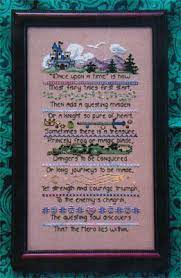 "Once upon a time" is how
Most fairy tales first start.
Then add a questing maiden
Or a knight so pure of heart.
Sometimes there is a treasure,
Princely frog or magic blade,
Dangers to be conquered
Or long journeys to be made.
Yet strength and courage triumph
To the enemy's chagrin.
The questing soul discovers
That the Hero lies within.